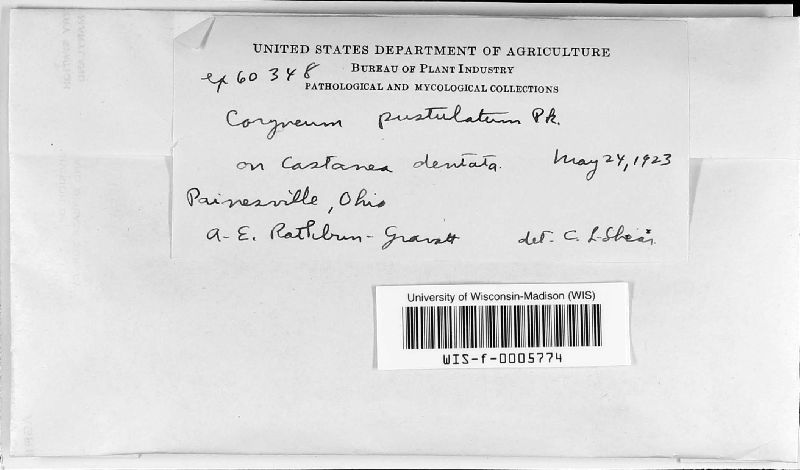 UNITED STATES DEPARTMENT OF AGRICULTURE
BUREAU OF PLANT INDUSTRY
ex 60348
PATHOLOGICAL AND MYCOLOGICAL COLLECTIONS
Coryneum pustulatum Pk.
on Castanea dentata. May 24, 1923
Painesville, Ohio
A. E. Rathbun-Gravatt det. C. L. Shear
University of Wisconsin-Madison (WIS)
WIS-f-0005774